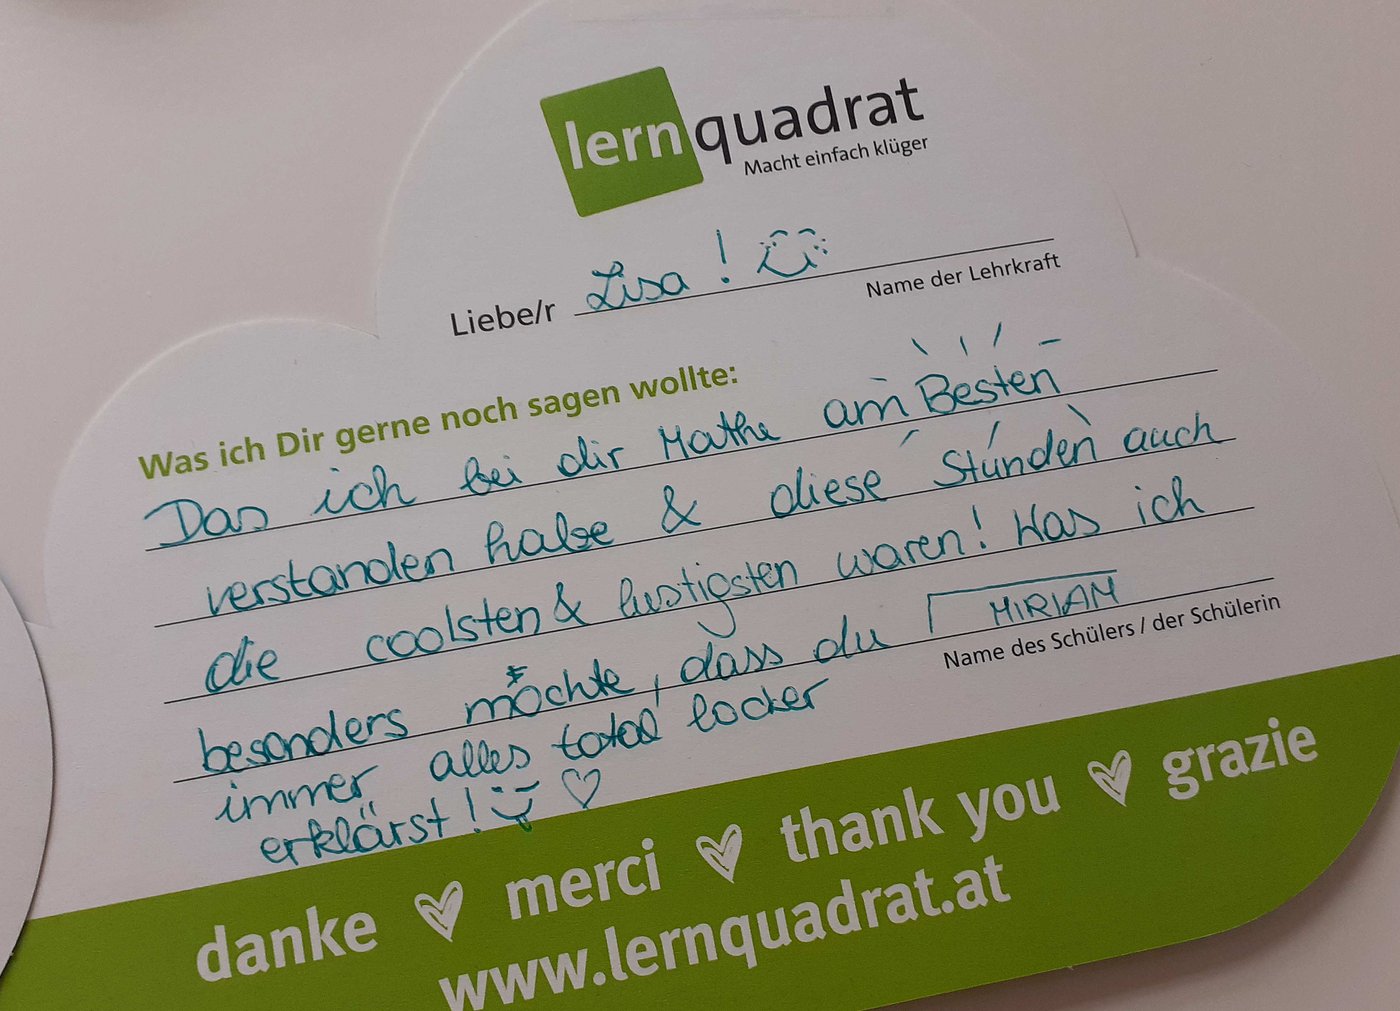 lernquadrat
Macht einfach klüger
Liebe/r Lisa!
Name der Lehrkraft
Was ich Dir gerne noch sagen wollte:
Das ich bei dir Mathe am Besten
verstanden habe & diese Stunden auch
die coolsten & lustigsten waren! Was ich
besonders möchte, dass du
MIRIAM
Name des Schülers / der Schülerin
immer alles total locker
erklärst!
danke merci thank you grazie
www.lernquadrat.at